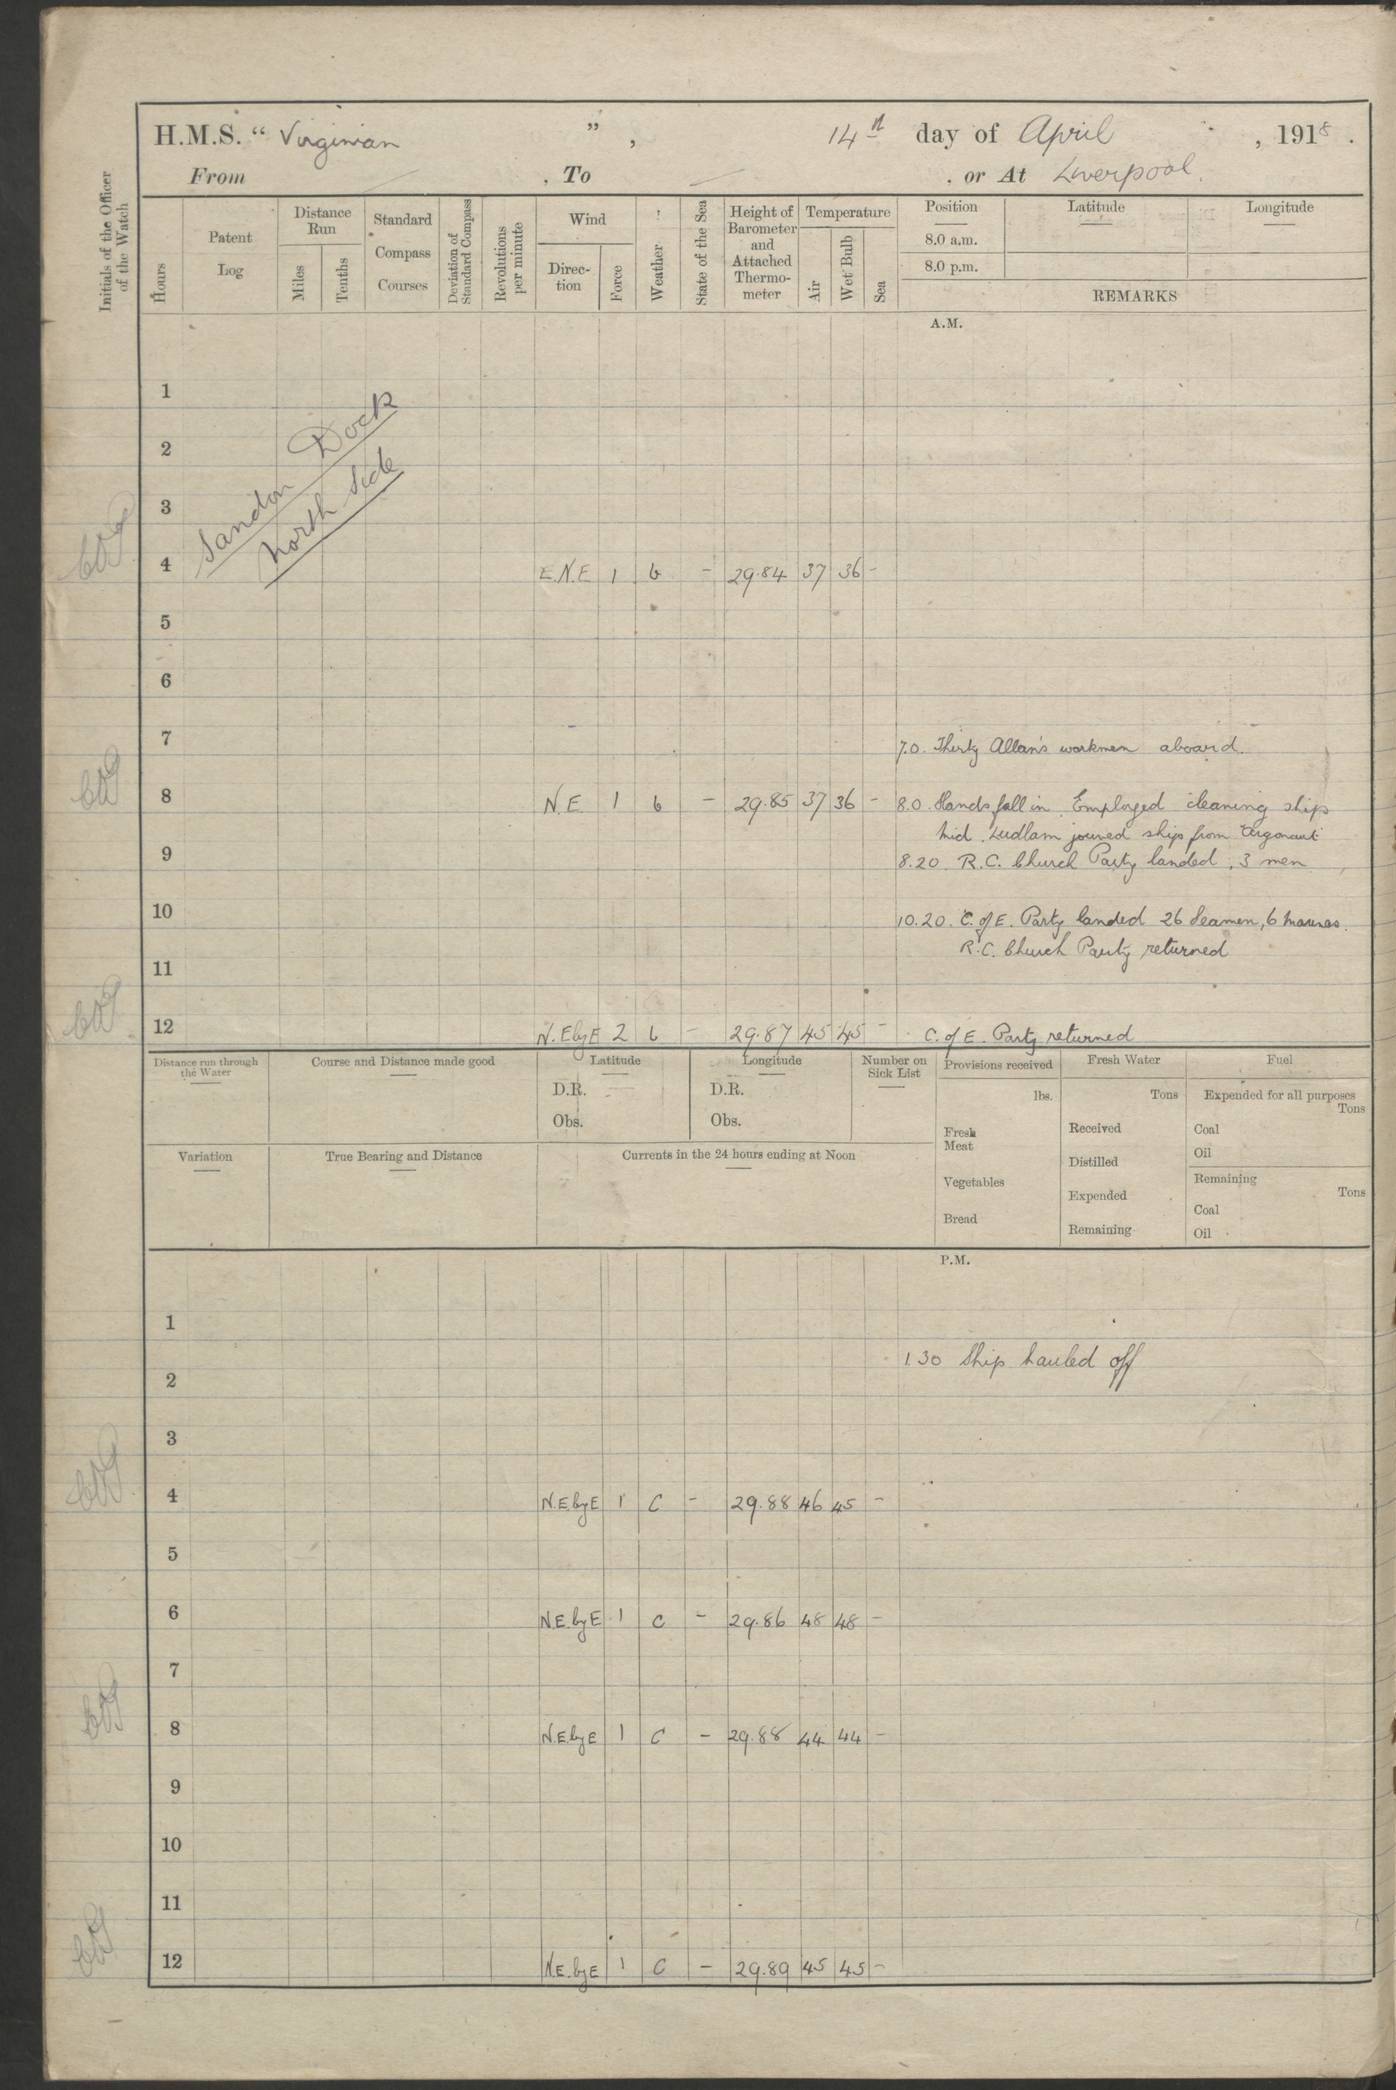 H.M.S. “ Virginian ” , 14th day of April , 1918 .
From — . To — . or At Liverpool.
Initials of the Officer of the Watch
Hours
Patent Log
Distance Run
Miles
Tenths
Standard Compass Courses
Deviation of Standard Compass
Revolutions per minute
Wind
Direc-tion
Force
Weather
State of the Sea
Height of Barometer and Attached Thermo-meter
Temperature
Air
Wet Bulb
Sea
Position Latitude Longitude
8.0 a.m.
8.0 p.m.
REMARKS
A.M.
1
2
3
Sandon Dock
North Side
4 E.N.E 1 b - 29.84 37 36 -
5
6
7 7.0. Thirty Allan's workmen aboard.
8 N.E 1 b - 29.85 37 36 - 8.0. Hands fall in. Employed cleaning ship
Mid. Ludlam joined ship from Argonaut
9 8.20 R.C. Church Party landed, 3 men
10 10.20. C. of E. Party landed 26 Seamen, 6 Marines.
R.C. Church Party returned
11
12 N.E by E 2 b - 29.87 45 45 - C. of E. Party returned
Distance run through the Water
Course and Distance made good
Latitude
D.R.
Obs.
Longitude
D.R.
Obs.
Number on Sick List
Provisions received
lbs.
Fresh Meat
Vegetables
Bread
Fresh Water
Tons
Received
Distilled
Expended
Remaining
Fuel
Expended for all purposes
Tons
Coal
Oil
Remaining
Tons
Coal
Oil
Variation
True Bearing and Distance
Currents in the 24 hours ending at Noon
P.M.
1
1.30 Ship hauled off
2
3
4 N.E. by E 1 C - 29.88 46 45 -
5
6 N.E. by E 1 C - 29.86 48 48 -
7
8 N.E. by E 1 C - 29.88 44 44 -
9
10
11
12 N.E. by E 1 C - 29.89 45 45 -